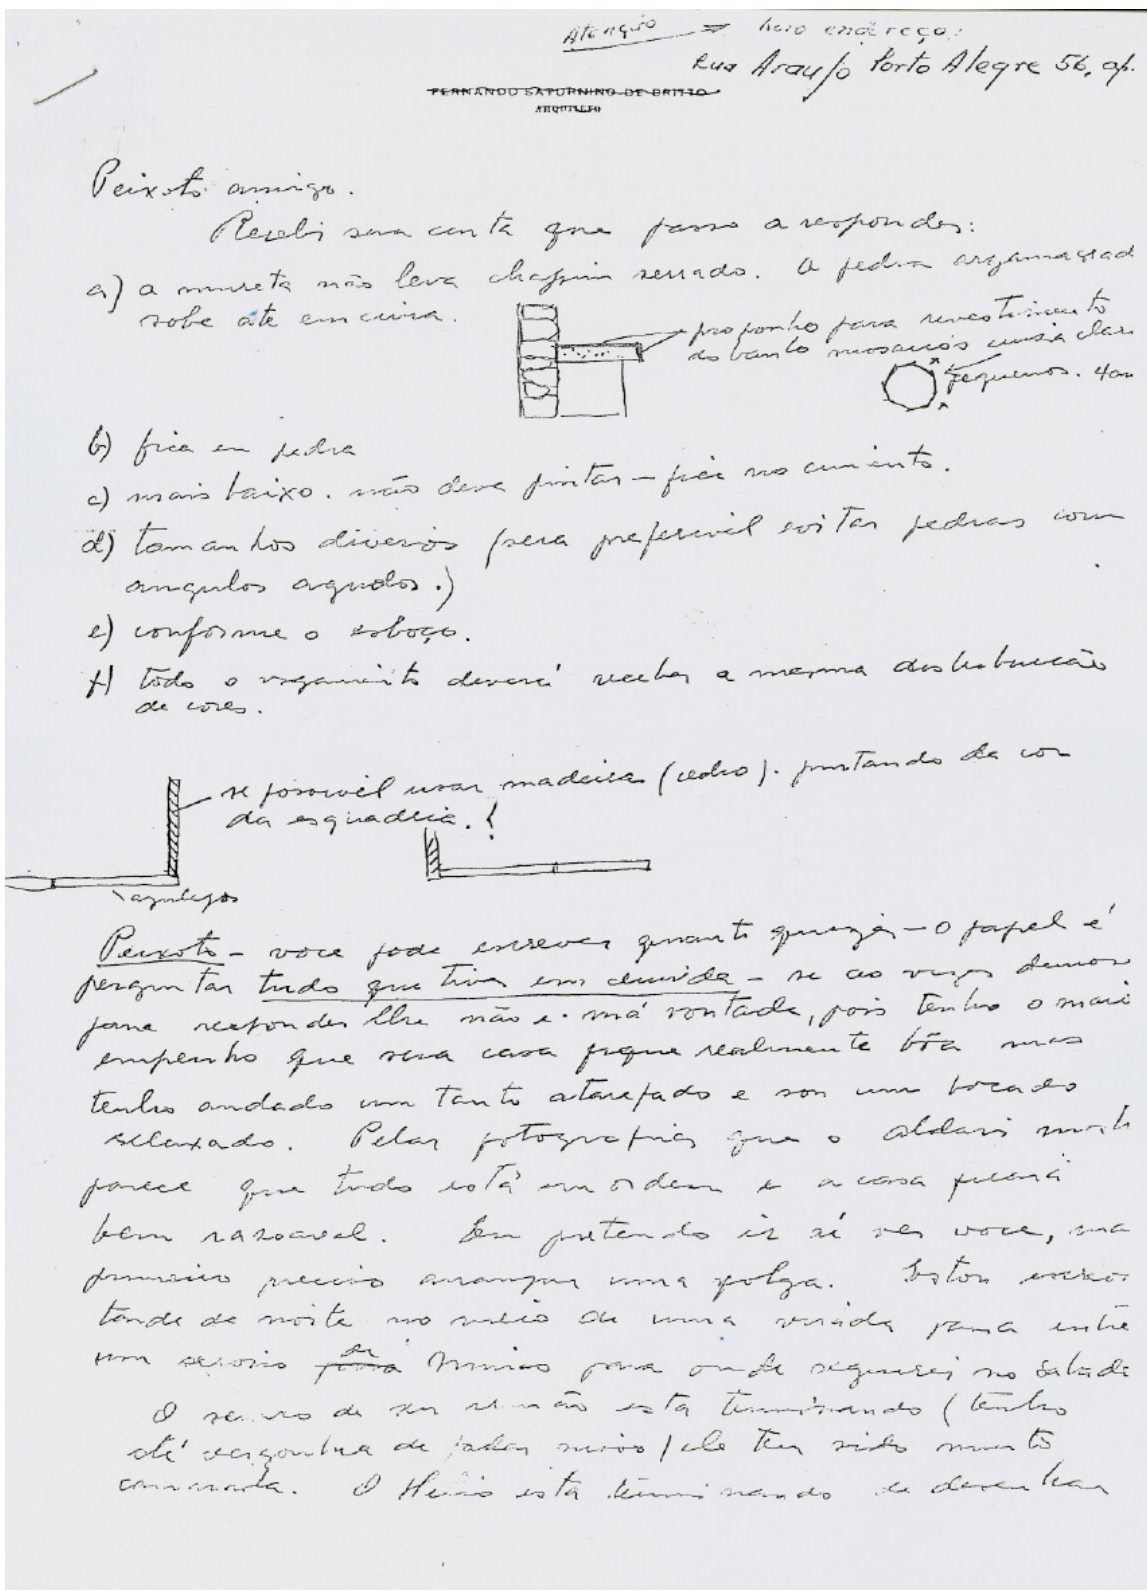 Atenção ⇒ novo endereço:
Rua Araujo Porto Alegre 56, ap.
FERNANDO SATURNINO DE BRITTO
ARQUITETO
Peixoto amigo.
Recebi sua carta que passo a responder:
a) a mureta não leva chapim serrado. A pedra argamassad
sobe até em cima.
proponho para revestimento
do banco mosaicos cinza clar
pequenos. 4cm
b) fica em pedra
c) mais baixo. não deve pintar – fica no cimento.
d) tamanhos diversos (sera preferivel evitar pedras com
angulos agudos.)
e) conforme o esboço.
f) todo o vigamento deverá receber a mesma distribuição
de cores.
se possivel usar madeira (cedro). pintando da cor
da esquadria.!
azulejos
Peixoto – voce pode escrever quanto queira – o papel é
perguntar tudo que tiver em duvida – se as vezes demor
para responder lhe não é má vontade, pois tenho o maio
empenho que sua casa fique realmente bôa mas
tenho andado um tanto atarefado e sou um bocado
relaxado. Pelas fotografias que o Aldary
parece que tudo está em ordem e a casa ficará
bem rasoavel. Eu pretendo ir aí ver voce, ma
primeiro preciso arranjar uma folga. Estou escre
tarde da noite no meio de uma virada para entre
um servio de Minas para onde seguirei no sabado
O de seu irmão esta terminando (tenho
até vergonha de falar nisso) ele tem sido muito
camarada. O Helio esta terminando de desenhar